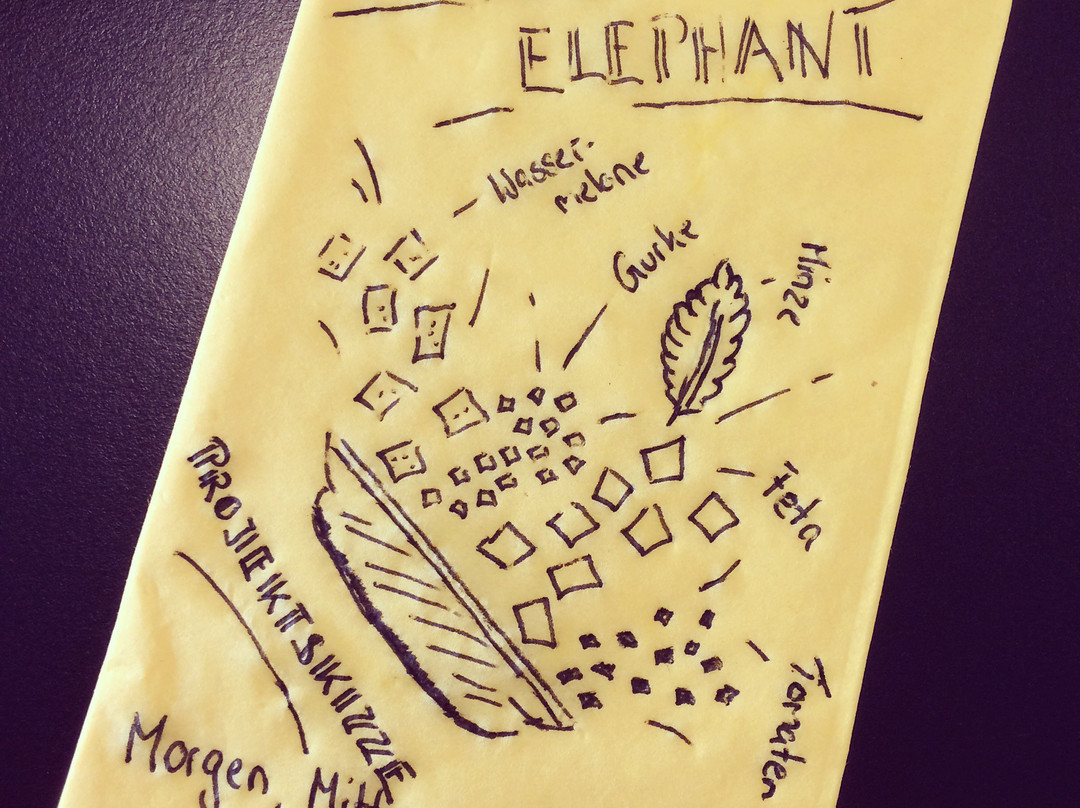 ELEPHANT
Wasser-
melone
Gurke
Minze
Feta
Tomaten
PROJEKTSKIZZE
Morgen